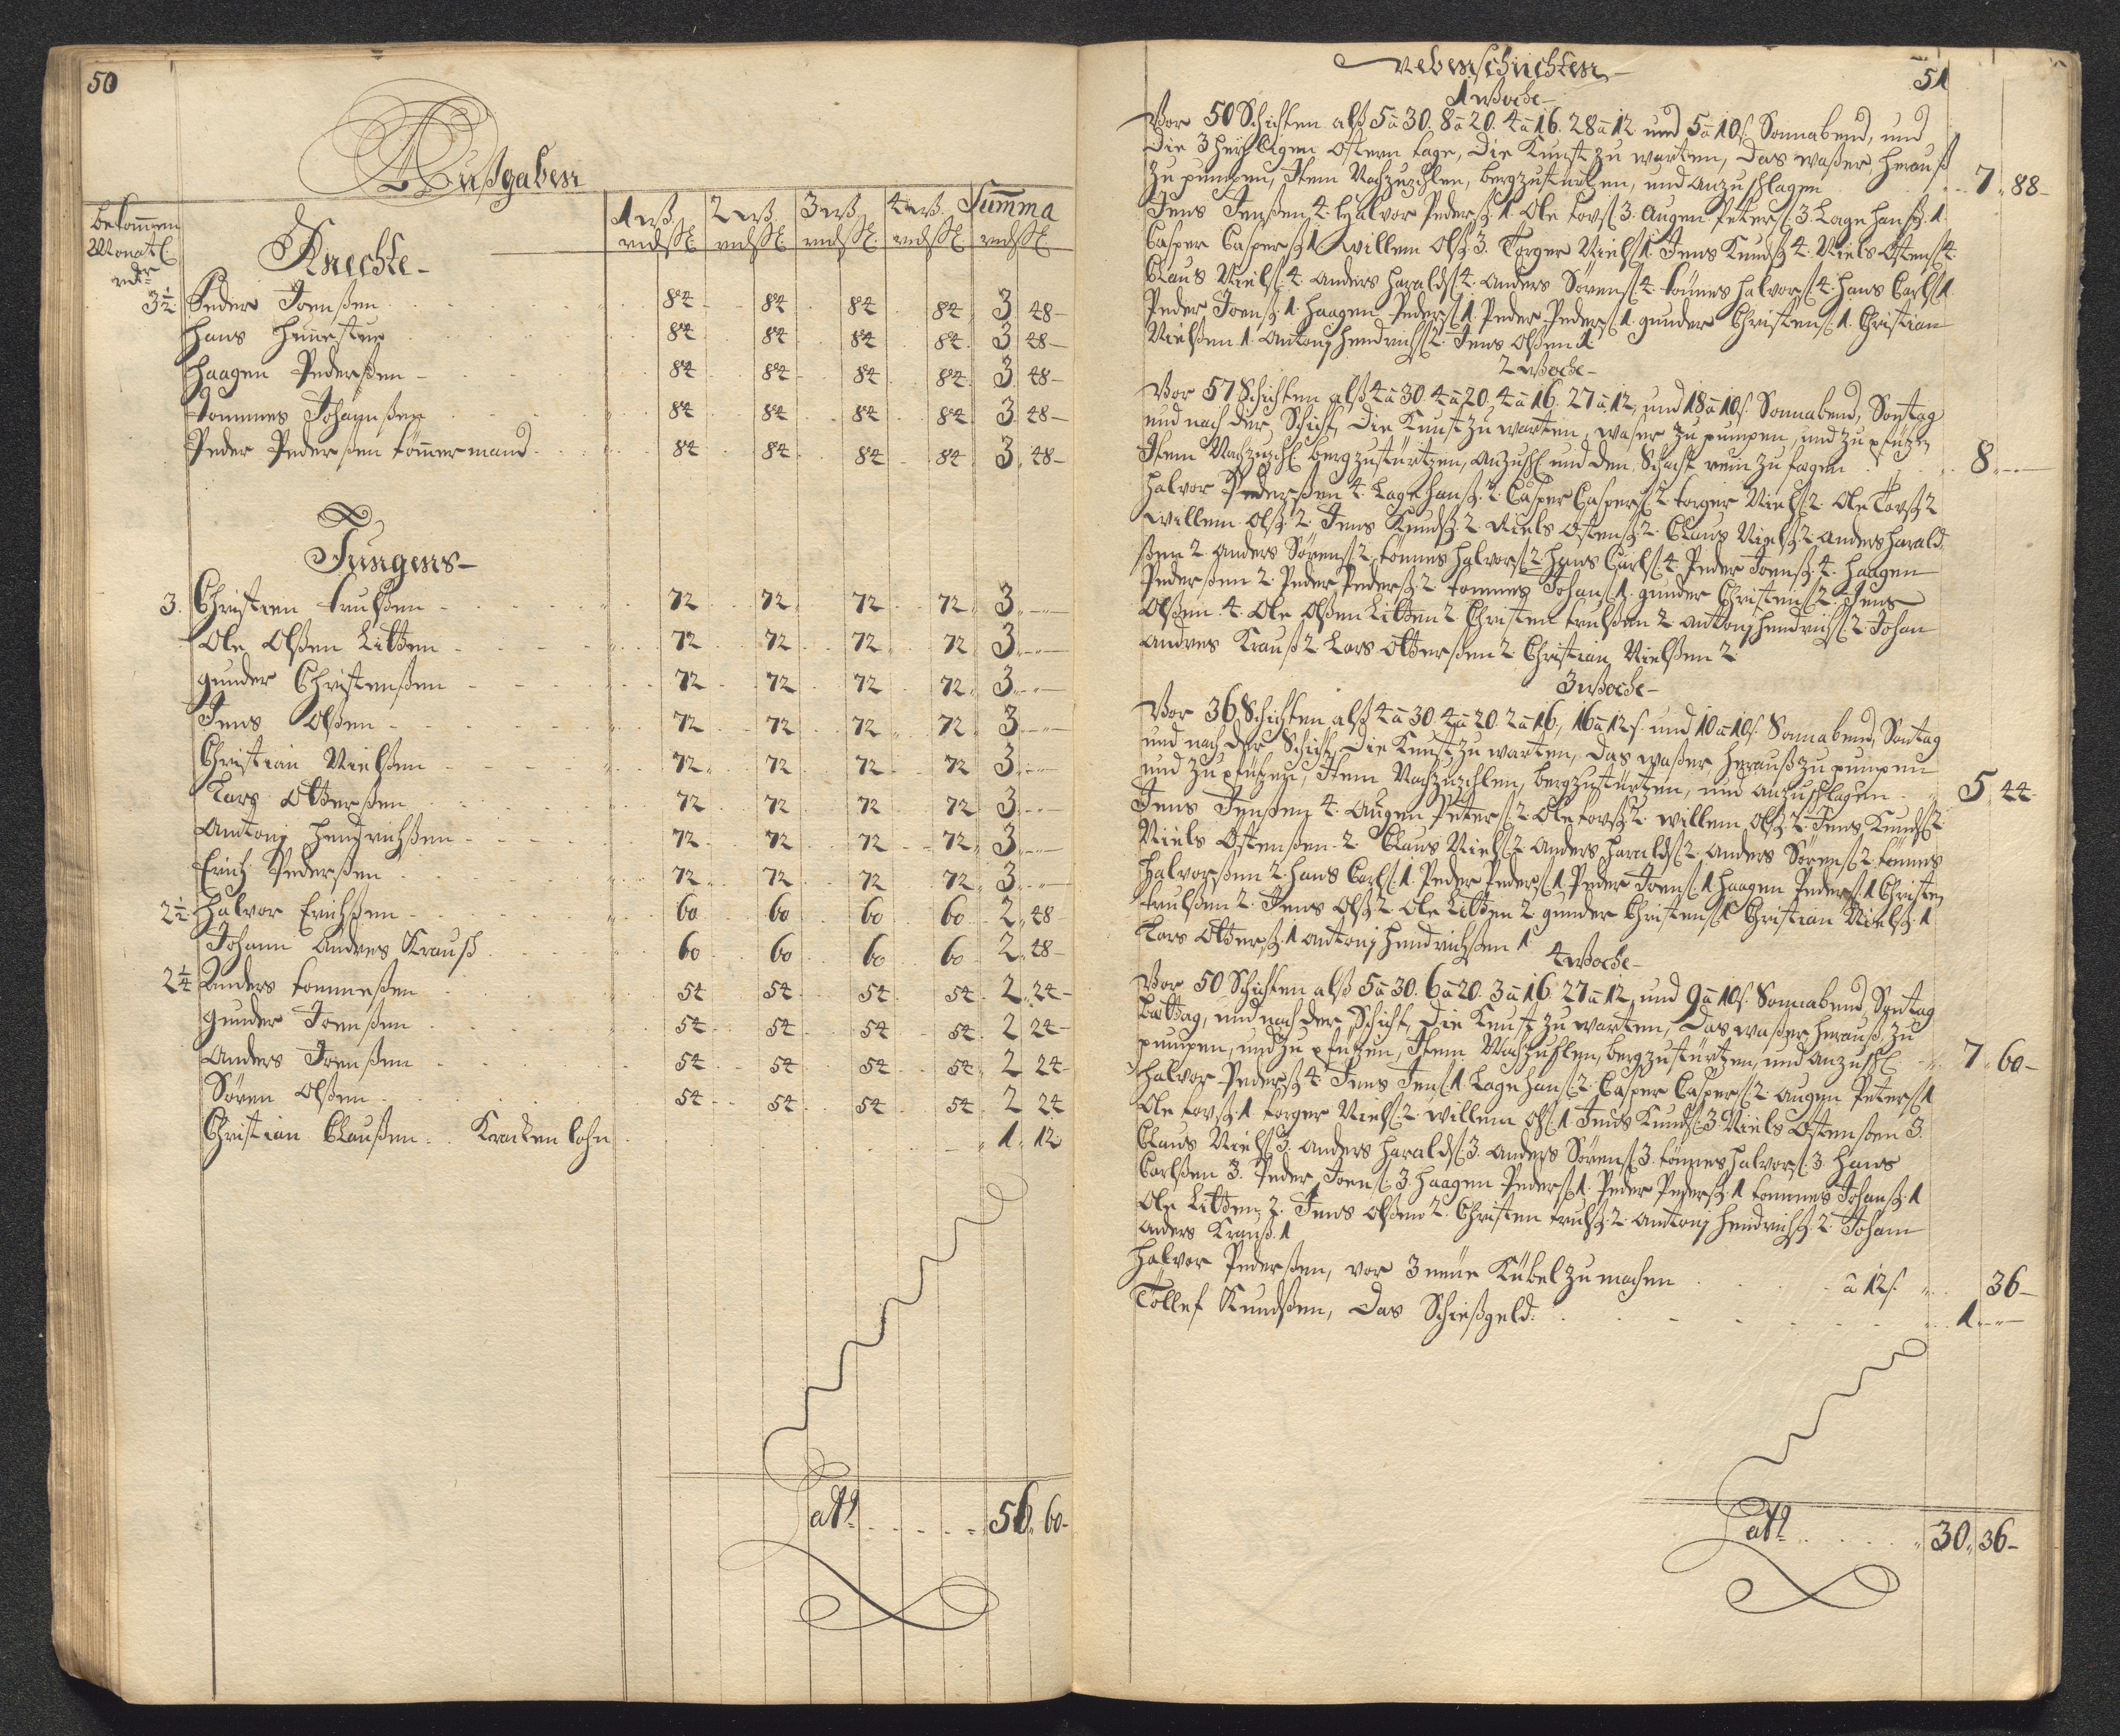 50
Außgaben
bekom̄en
Monatl
rdr
1 wß 2 wß 3 wß 4 wß Sum̄a
rdß rdß rdß rdß rdß
Knechte
3½ Peder Joenßen 84 84 84 84 3 48
Hans 84 84 84 84 3 48
Haagen Pederßen 84 84 84 84 3 48
Tommes Johanßen 84 84 84 84 3 48
Peder Pederßen töm̄ermand 84 84 84 84 3 48
Jungens
3. Christen trulßen 72 72 72 72 3
Ole Olßen Litten 72 72 72 72 3
gunder Christenßen 72 72 72 72 3
Jens Olßen 72 72 72 72 3
Christian Nielßen 72 72 72 72 3
Lars Otterßen 72 72 72 72 3
Antonj Hendrichßen 72 72 72 72 3
Erich Pederßen 72 72 72 72 3
2½ Halvor Erichßen 60 60 60 60 2 48
Johann Andres Krauß 60 60 60 60 2 48
2¼ Anders tommeßen 54 54 54 54 2 24
Gunder Joenßen 54 54 54 54 2 24
Anders Joenßen 54 54 54 54 2 24
Sören Olßen 54 54 54 54 2 24
Christian Claußen Krancken lohn 1 12
Lats 56 60
51
Nebenschichten
1 Woche
Vor 50 Schichten alß 5 a 30. 8 a 20. 4 a 16. 28 a 12 und 5 a 10 ß Sonnabend, und
die 3 heyligen Ostern tage, die Kunst zu warten, das waßer herauß
zu pumpen, Item Nachzuzehlen, bergzustürtzen, und anzuschlagen 7 88
Jens Jenßen 4. Halvor Pederß 1. Ole torß 3. Augen Peterß 3. Lage Hanß 1.
Casper Casperß 1 Willem Olß 3. Torger Nielß 1. Jens Knudß 4. Niels Ostenß 4.
Claus Nielß 4. Anders Haraldß 4. Anders Sörenß 4. tönnes Halvorß 4. Hans Carlß 1.
Peder Joenß 1. Haagen Pederß 1. Peder Pederß 1. gunder Christenß 1. Christian
Nielßen 1. Antonj Hendrichß 2. Jens Olßen 1
2 Woche
Vor 57 Schichten alß 4 a 30. 4 a 20. 4 a 16. 27 a 12, und 18 a 10 ß Sonnabend, Sontag
und nach der Schicht, die Kunst zu warten, waßer zu pumpen, und zu pfützen
Item Nachzuzehl bergzustürtzen, anzuschl und den Schacht rein zu fegen 8
Halvor Pederßen 4. Lage Hanß 2. Casper Casperß 2 torger Nielß 2. Ole Torß 2
Willem Olß 2. Jens Knudß 2 Niels Ostenß 2. Claus Nielß 2 Anders Harald
ßen 2. Anders Sörenß 2. tönnes Halvorß 2. Hans Carlß 4. Peder Joenß 4. Haagen
Pederßen 2. Peder Pederß 2 tommes Johanß 1. gunder Christenß 2. Jens
Olßen 4. Ole Olßen Litten 2 Christen trulßen 2 Antonj Hendrichß 2 Johan
Andres Krauß 2. Lars Otterßen 2. Christian Nielßen 2.
3 Woche
Vor 36 Schichten alß 4 a 30. 4 a 20. 2 a 16, 16 a 12 ß und 10 a 10 ß Sonnabend, Sontag
und nach der Schicht, die Kunst zu warten, das waßer herauß zu pumpen
und zu pfützen, Item Nachzuzehlen, bergzustürten, und anzuschlagen 5 44
Jens Jenßen 4. Augen Peterß 2. Ole torß 2. Willem Olß 2. Jens Knudß 2
Niels Ostenßen 2. Claus Nielß 2. Anders Haraldß 2. Anders Sörenß 2. tönnes
Halvorßen 2. Hans Carlß 1. Peder Pederß 1. Peder Joenß 1 Haagen Pederß 1 Christen
trulßen 2. Jens Olß 2. Ole Litten 2 gunder Christenß 1 Christian Nielß 1
Lars Otterß 1 Antonj Hendrichßen 1
4 Woche
Vor 50 Schichten alß 5 a 30. 6 a 20. 3 a 16. 27 a 12, und 9 a 10 ß Sonnabend, Sontag
Bettag, und nach der Schicht, die Kunst zu warten, das waßer herauß, zu
pumpen, und zu pfützen, Item Nachzuzehlen, bergzustürtzen, und anzuschl 7 60
Halvor Pederß 4. Jens Jenß 1. Lage Hanß 2. Casper Casperß 2. Augen Peterß 1
Ole torß 1 torger Nielß 2. Willem Olß 1 Jens Knudß 3. Niels Ostenßen 3.
Claus Nielß 3. Anders Haraldß 3. Anders Sörenß 3. tönnes Halvorß 3. Hans
Carlßen 3. Peder Joenß 3. Haagen Pederß 1. Peder Pederß 1 tommes Johanß 1
Ole Litten 2. Jens Olßen 2. Christen trulß 2. Antonj Hendrichß 2. Johann
Anders Krauß 1
Halvor Pederßen, vor 3 neüe Kübel zu machen a 12 ß 36
Tollef Knudßen, das Schießgeld 1
Lats 30 36